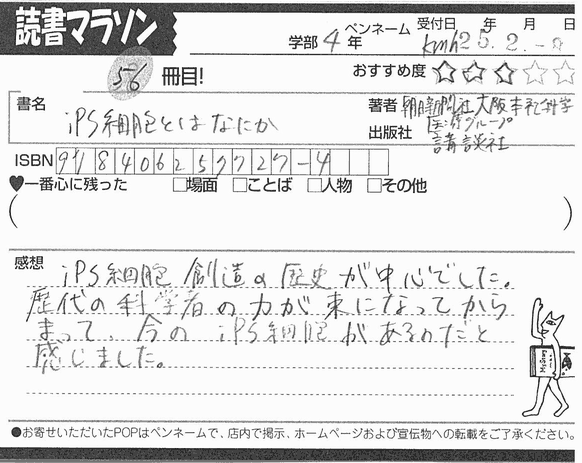 読書マラソン
学部 4年 ペンネーム kmh 受付日 年 月 日
25.2.-8
56 冊目! おすすめ度 ☆☆☆☆☆
書名 iPS細胞とはなにか
著者 朝日新聞社大阪本社科学
医療グループ
出版社 講談社
ISBN 978406257727-4
♥一番心に残った □場面 □ことば □人物 □その他
( )
感想 iPS細胞 創造の歴史が中心でした。
歴代の科学者の力が束になってから
まって 今の iPS細胞があるのだと
感じました。
●お寄せいただいたPOPはペンネームで、店内で掲示、ホームページおよび宣伝物への転載をご了承ください。